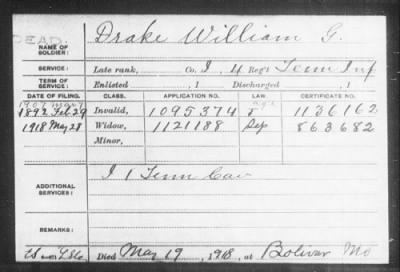 DEAD.
NAME OF SOLDIER: Drake William G.
SERVICE: Late rank, Co. I, 4 Reg't Tenn Inf
TERM OF SERVICE: Enlisted , 1 Discharged , 1
DATE OF FILING. CLASS. APPLICATION NO. LAW. CERTIFICATE NO.
1907 Mar 7
1892 Feb 29 Invalid, 1095374 1136162
1918 May 28 Widow, 1121188 Sep 863682
Minor,
ADDITIONAL SERVICES: I 1 Tenn Cav
REMARKS:
Died May 19, 1918, at Bolivar Mo